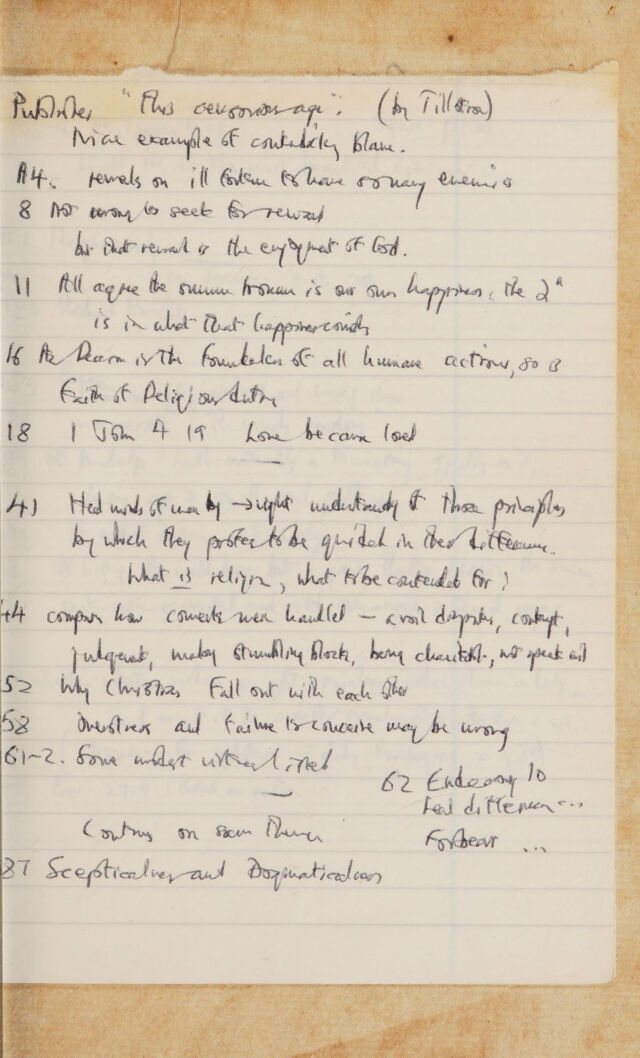 Publisher "This censorious age". (by Tillotson)
Nice example of contradictory blame.
A4. reveals on ill fortune to have so many enemies
8 Not wrong to seek for reward
but that reward is the enjoyment of God.
11 All agree the summum bonum is our own happiness, the
is in what that happiness consists
16 As Reason is the foundation of all humane actions, so is
Faith of Religious duties
18 1 John 4 19 Love because loved
41 Heal minds of men by → right understanding of those principles
by which they profess to be guided in their difference.
What is religion, what to be contended for?
44 compare how converts were handled – avoid disputes, contempt,
judgement, making stumbling blocks, being charitable, not speak evil
52 Why Christians Fall out with each other
58 and failure to conceive may be wrong
61-2. Some modest virtues listed
62 Endeavour to
heal differences ...
Forbear ...
Continues on same theme
87 Scepticalness and Dogmaticalness